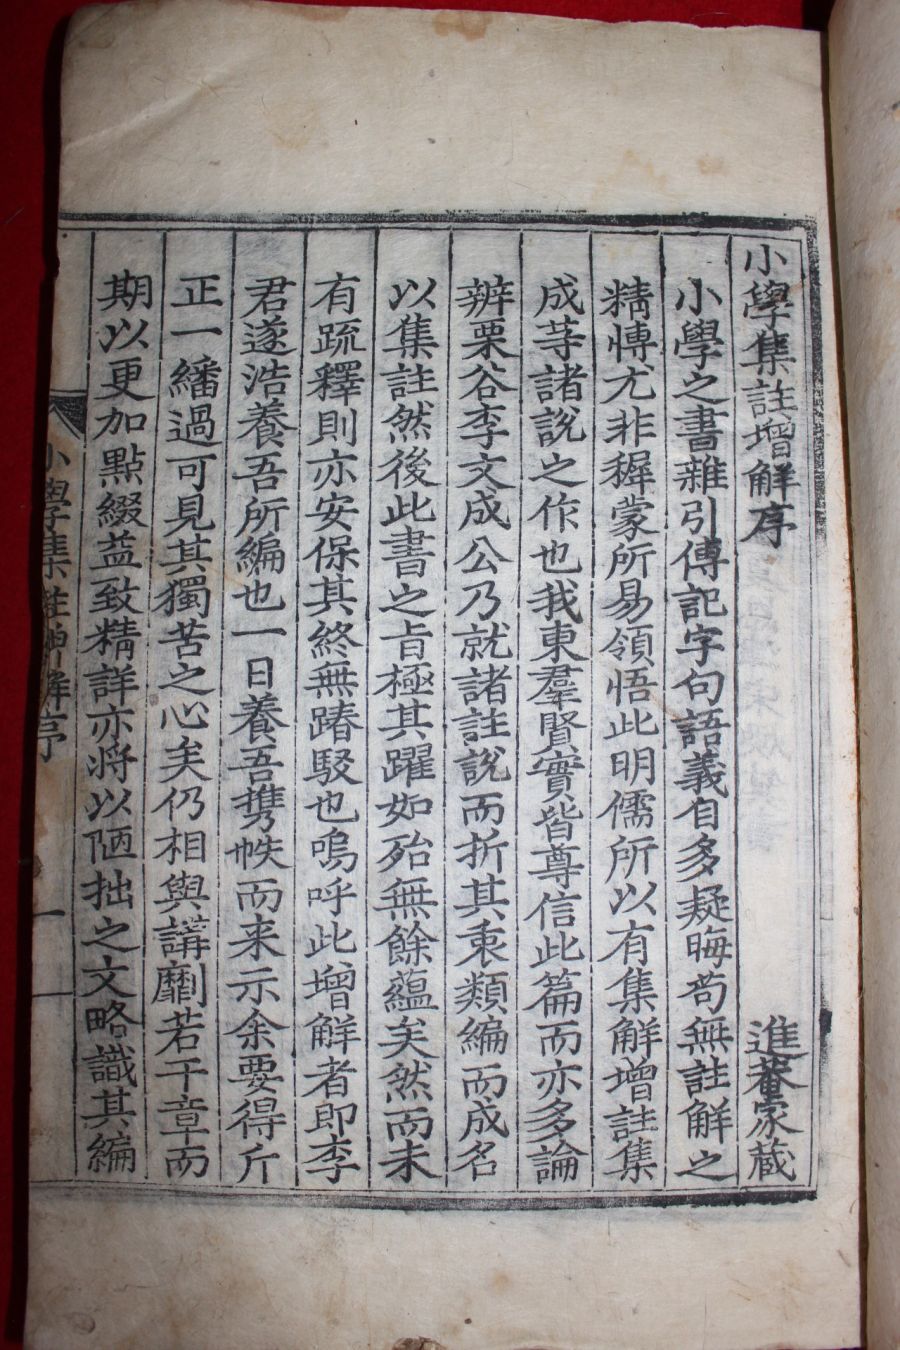 小學集註增解序 進菴家藏
小學之書雜引傳記字句語義自多疑晦苟無註解之
精愽尤非穉蒙所易領悟此明儒所以有集解增註集
成等諸說之作也我東羣賢實皆尊信此篇而亦多論
辨栗谷李文成公乃就諸註說而折其衷類編而成名
以集註然後此書之旨極其躍如殆無餘蘊矣然而未
有疏釋則亦安保其終無踳駁也嗚呼此增解者即李
君遂浩養吾所編也一日養吾携帙而来示余要得斤
正一繙過可見其獨苦之心矣仍相與講劘若干章而
期以更加點綴益致精詳亦將以陋拙之文略識其編
小學集註增解序
一